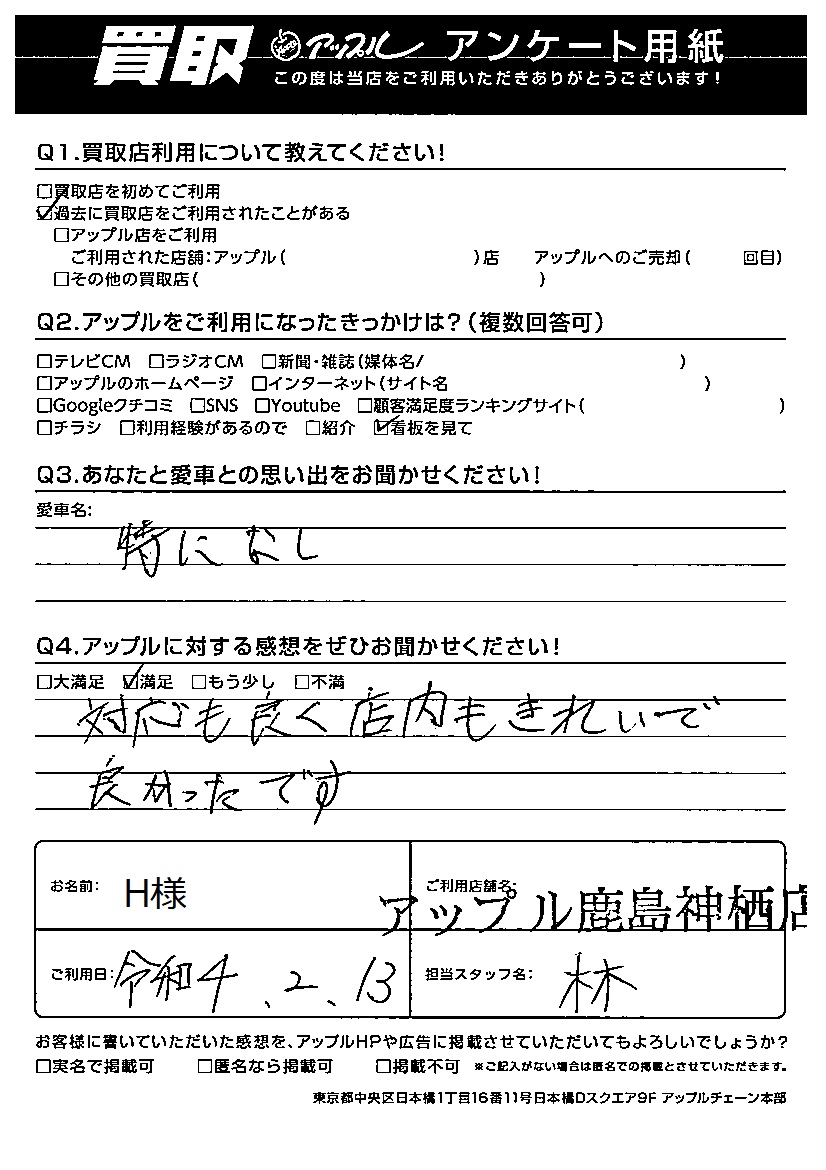 買取 アップル アンケート用紙
この度は当店をご利用いただきありがとうございます!
Q1.買取店利用について教えてください!
□買取店を初めてご利用
☑過去に買取店をご利用されたことがある
□アップル店をご利用
ご利用された店舗:アップル( )店 アップルへのご売却( 回目)
□その他の買取店( )
Q2.アップルをご利用になったきっかけは?(複数回答可)
□テレビCM □ラジオCM □新聞・雑誌(媒体名/ )
□アップルのホームページ □インターネット(サイト名 )
□Googleクチコミ □SNS □Youtube □顧客満足度ランキングサイト( )
□チラシ □利用経験があるので □紹介 ☑看板を見て
Q3.あなたと愛車との思い出をお聞かせください!
愛車名:
特になし
Q4.アップルに対する感想をぜひお聞かせください!
□大満足 ☑満足 □もう少し □不満
対応も良く店内もきれいで
良かったです
お名前: H様 ご利用店舗名: アップル鹿島神栖店
ご利用日: 令和4.2.13 担当スタッフ名: 林
お客様に書いていただいた感想を、アップルHPや広告に掲載させていただいてもよろしいでしょうか?
□実名で掲載可 □匿名なら掲載可 □掲載不可 ※ご記入がない場合は匿名での掲載とさせていただきます。
東京都中央区日本橋1丁目16番11号日本橋Dスクエア9F アップルチェーン本部